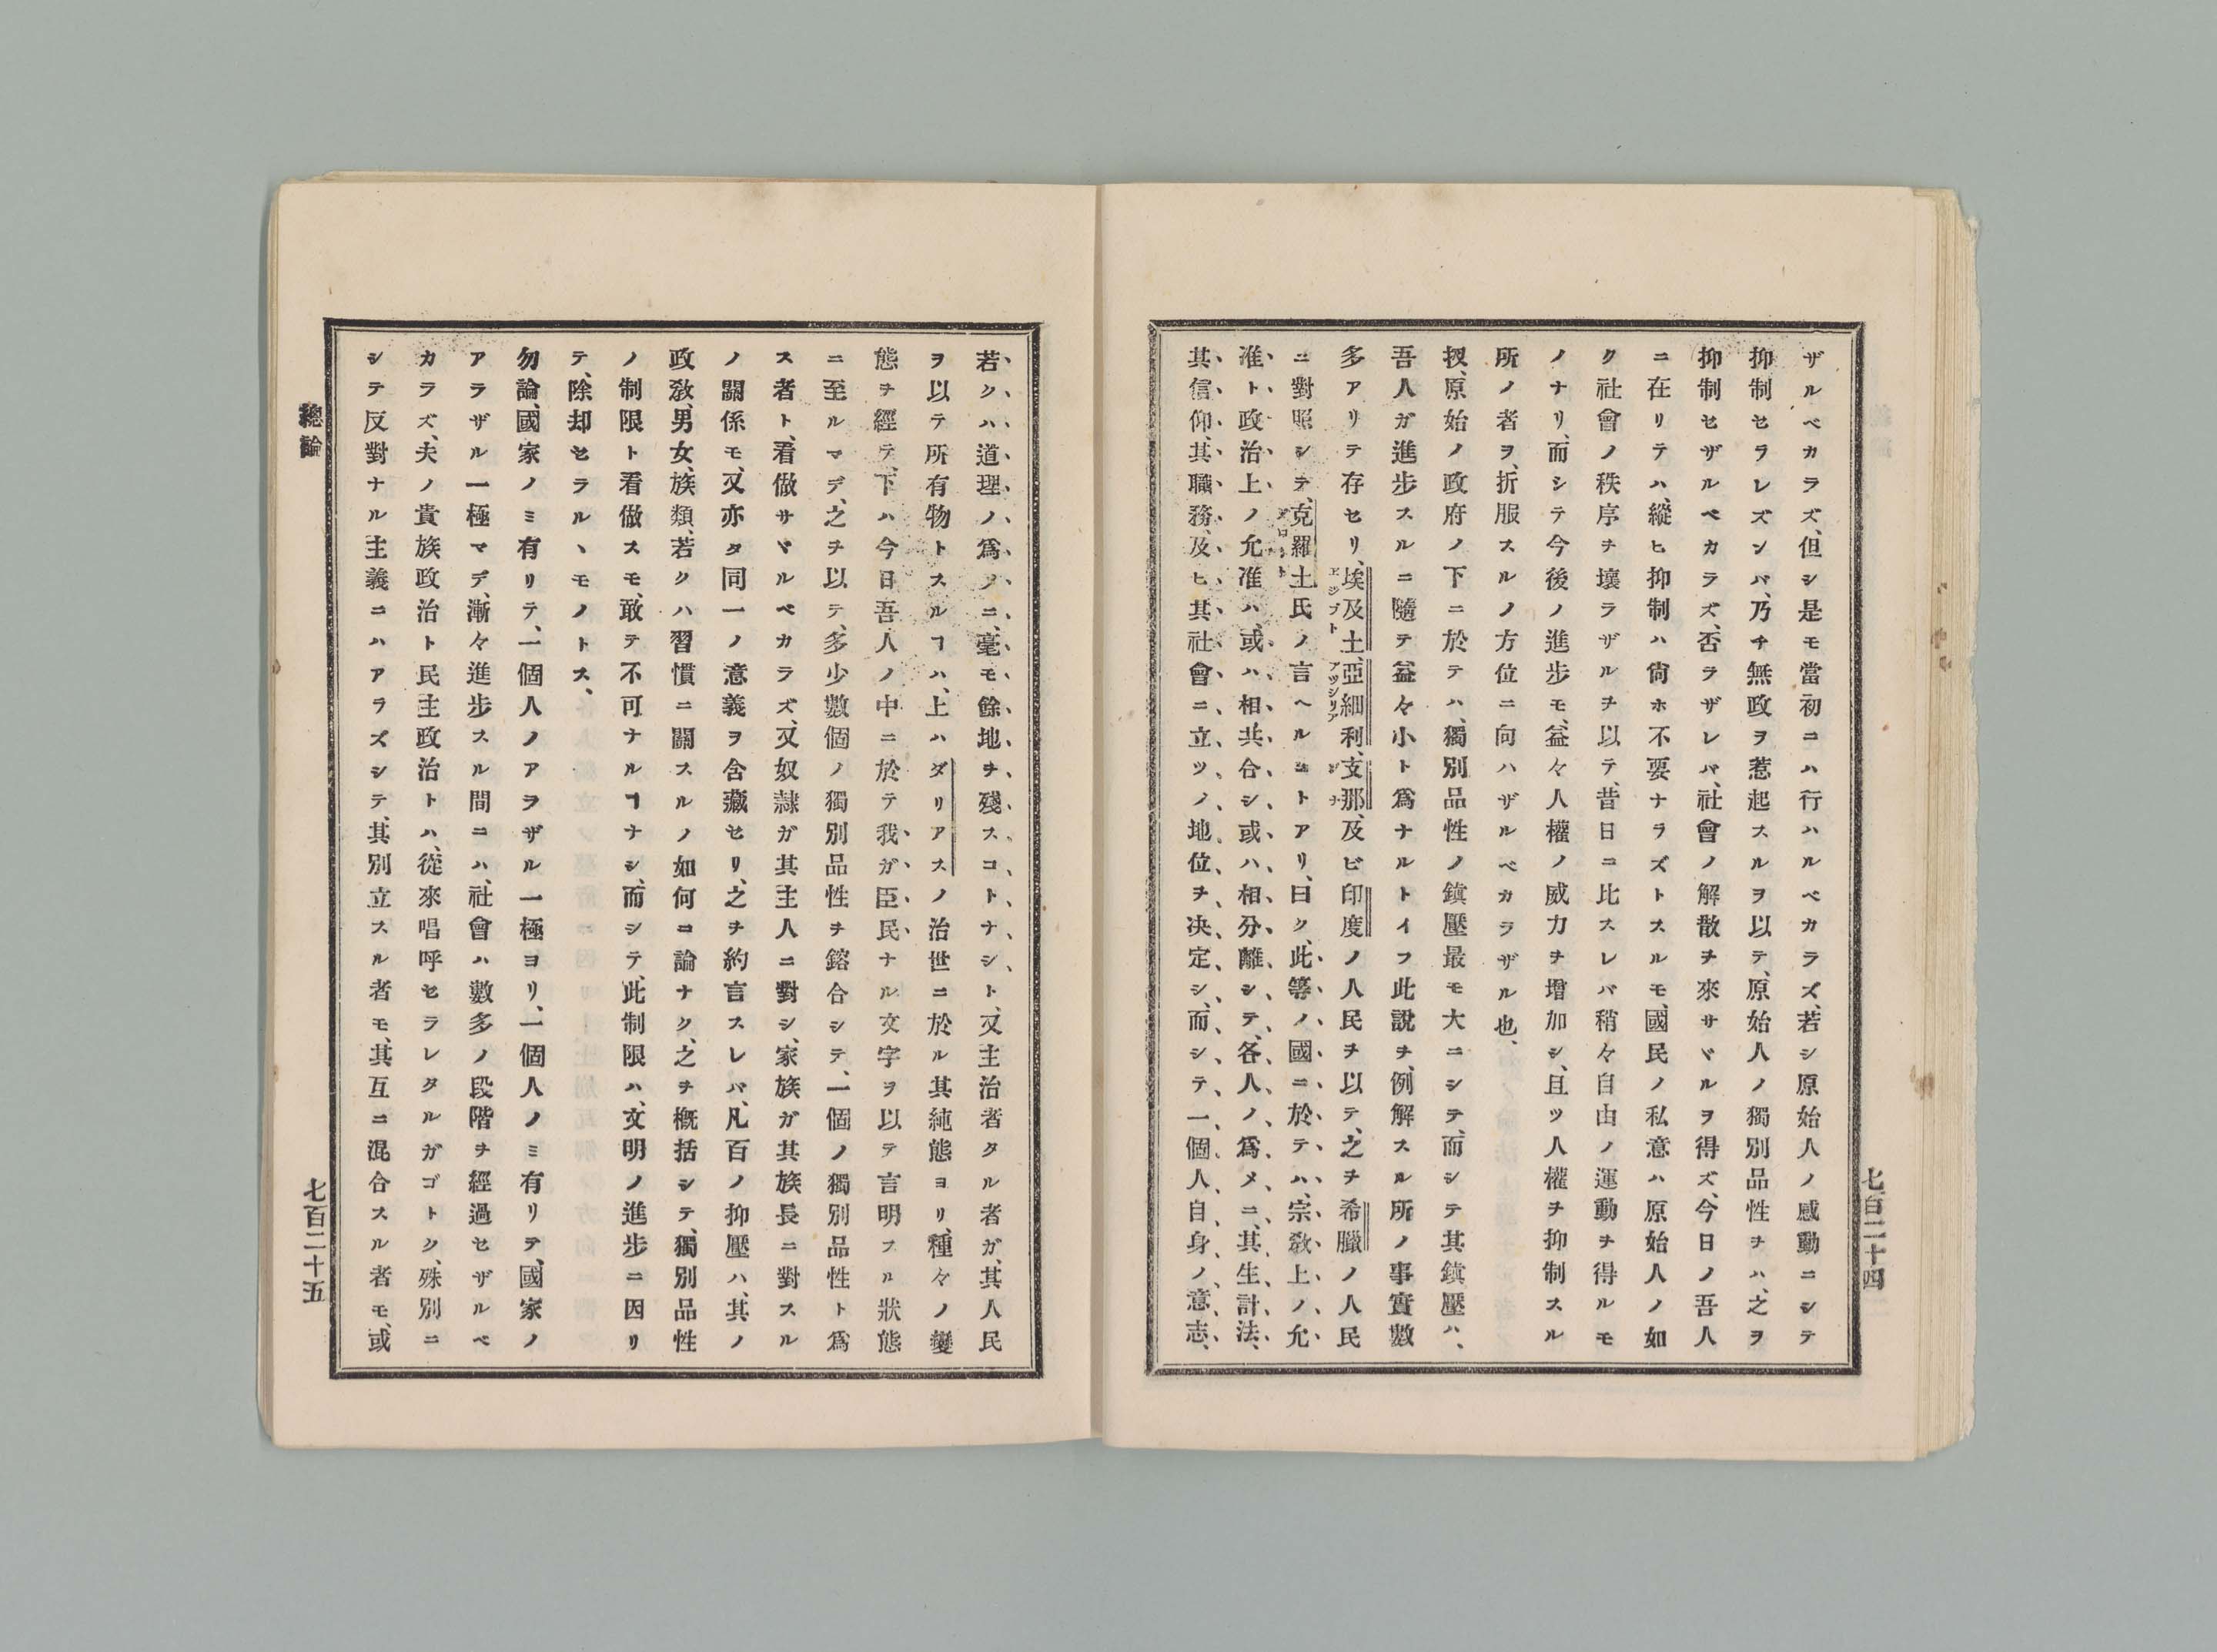 七百二十四
ザルベカラズ、但シ是モ當初ニハ行ハルベカラズ、若シ原始人ノ感動ニシテ
抑制セラレズンバ、乃チ無政ヲ惹起スルヲ以テ、原始人ノ獨別品性ヲハ、之ヲ
抑制セザルベカラズ、否ラザレバ、社會ノ解散ヲ來サヾルヲ得ズ、今日ノ吾人
ニ在リテハ、縱ヒ抑制ハ尙ホ不要ナラズトスルモ、國民ノ私意ハ原始人ノ如
ク社會ノ秩序ヲ壞ラザルヲ以テ、昔日ニ比スレバ稍々自由ノ運動ヲ得ルモ
ノナリ、而シテ今後ノ進步モ、益々人權ノ威力ヲ增加シ、且ツ人權ヲ抑制スル
所ノ者ヲ、折服スルノ方位ニ向ハザルベカラザル也、
扨、原始ノ政府ノ下ニ於テハ、獨別品性ノ鎭壓最モ大ニシテ、而シテ其鎭壓ハ、
吾人ガ進步スルニ隨テ益々小ト爲ナルトイフ此說ヲ、例解スル所ノ事實數
多アリテ存セリ、埃及土、亞細利、支那、及ビ印度ノ人民ヲ以テ、之ヲ希臘ノ人民
エジプト アッシリア シナ
ニ對照シテ、克羅土氏ノ言ヘルコトアリ、曰ク、此等ノ國ニ於テハ、宗敎上ノ允
准ト政治上ノ允准ハ、或ハ相共合シ或ハ相分離シテ、各人ノ爲メニ、其生計法、
其信仰、其職務、及ヒ其社會ニ立ツノ地位ヲ決定シ、而シテ一個人自身ノ意志、
若クハ道理ノ爲メニ、毫モ餘地ヲ殘スコトナシト、又主治者タル者ガ、其人民
ヲ以テ所有物トスルヿハ、上ハダリアスノ治世ニ於ル其純態ヨリ、種々ノ變
態ヲ經テ、下ハ今日吾人ノ中ニ於テ我ガ臣民ナル文字ヲ以テ言明スル狀態
ニ至ルマデ、之ヲ以テ、多少數個ノ獨別品性ヲ鎔合シテ、一個ノ獨別品性ト爲
ス者ト、看做サヾルベカラズ、又奴隷ガ其主人ニ對シ、家族ガ其族長ニ對スル
ノ關係モ、又亦タ同一ノ意義ヲ含藏セリ、之ヲ約言スレバ、凡百ノ抑壓ハ、其ノ
政敎、男女、族類、若クハ習慣ニ關スルノ如何ニ論ナク、之ヲ槪括シテ、獨別品性
ノ制限ト看做スモ、敢テ不可ナルヿナシ、而シテ、此制限ハ、文明ノ進步ニ因リ
テ、除却セラルヽモノトス、
勿論、國家ノミ有リテ、一個人ノアヲザル一極ヨリ、一個人ノミ有リテ、國家ノ
アラザル一極マデ、漸々進步スル間ニハ、社會ハ數多ノ段階ヲ經過セザルベ
カラズ、夫ノ貴族政治ト民主政治トハ、從來唱呼セラレタルガゴトク、殊別ニ
シテ反對ナル主義ニハアラズシテ、其別立スル者モ、其互ニ混合スル者モ、或
總論
七百二十五